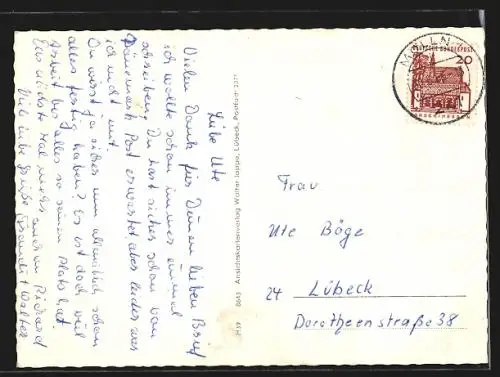 Liebe Ute
Vielen Dank für Deinen lieben Brief
ich wollte schon immer einmal
schreiben, Du hast sicher schon von
Dänemark Post erwartet, aber leider war
ich nicht mit.
Du wirst ja sicher nun allmählich schon
alles fertig haben? Es ist doch viel
Arbeit bis alles so seinen Platz hat.
Das nächste Mal mehr, auch an Richard
Viele liebe Grüße + Walter
Ansichtskartenverlag Walther Jaeppe, Lübeck, Postfach 2271
MÖLLN
DEUTSCHE BUNDESPOST
20
Frau
Ute Böge
24 Lübeck
Dorotheenstraße 38